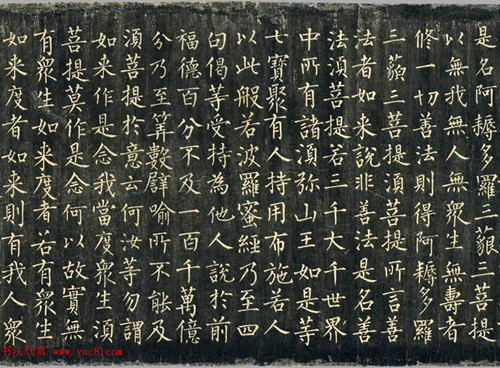 是名阿耨多羅三藐三菩提
以無我無人無衆生無壽者
修一切善法則得阿耨多羅
三藐三菩提須菩提所言善
法者如來說非善法是名善
法須菩提若三千大千世界
中所有諸須弥山王如是等
七寶聚有人持用布施若人
以此般若波羅蜜經乃至四
句偈等受持為他人說於前
福德百分不及一百千萬億
分乃至筭數譬喻所不能及
須菩提於意云何汝等勿謂
如來作是念我當度衆生須
菩提莫作是念何以故實無
有衆生如來度者若有衆生
如來度者如來則有我人衆
www.yac8.com